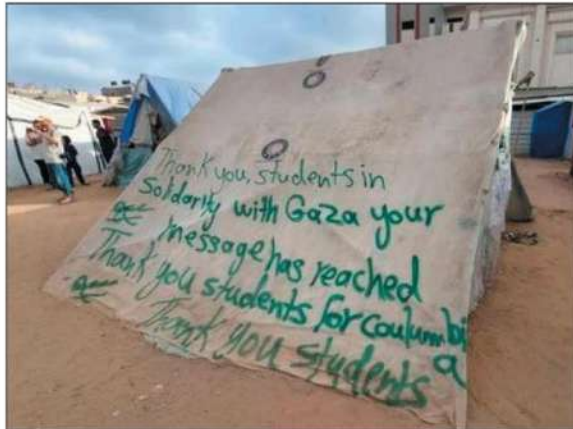 Thank you, students in
Solidarity with Gaza your
message has reached
Thank you students for coulumbia
Thank you students